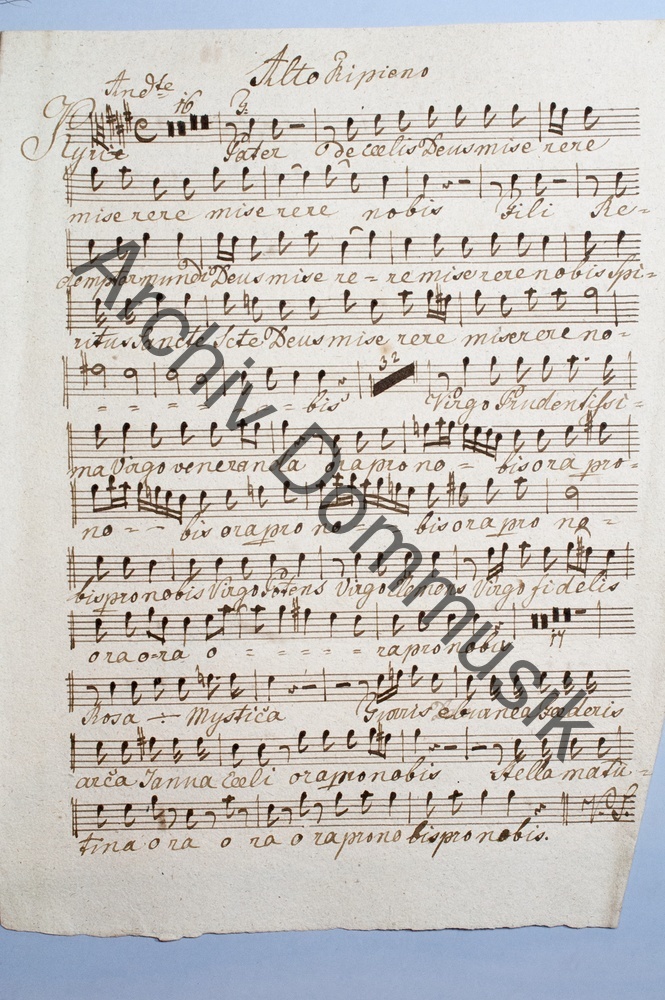 Alto Ripieno
Andte
16
Kyrie Pater de coelis Deus mise rere
mise rere mise rere nobis Fili Re=
demptor mundi Deus mise re = re miserere nobis Spi=
ritus Sancte Scte Deus mise rere miserere no=
= = = = = = bis 32 Virgo Prudentissi=
ma Virgo veneranda ora pro no = bis ora pro=
no = - bis ora pro no bis ora pro no =
bis pro nobis Virgo Potens Virgo Clemens Virgo fidelis
ora o=ra o = = = = = ra pro nobis 17
Rosa Mystica Turris eburnea foederis
arca Janua Coeli ora pro nobis Stella matu=
tina o ra o ra o ra pro no bis pro nobis.
Archiv Dommusik